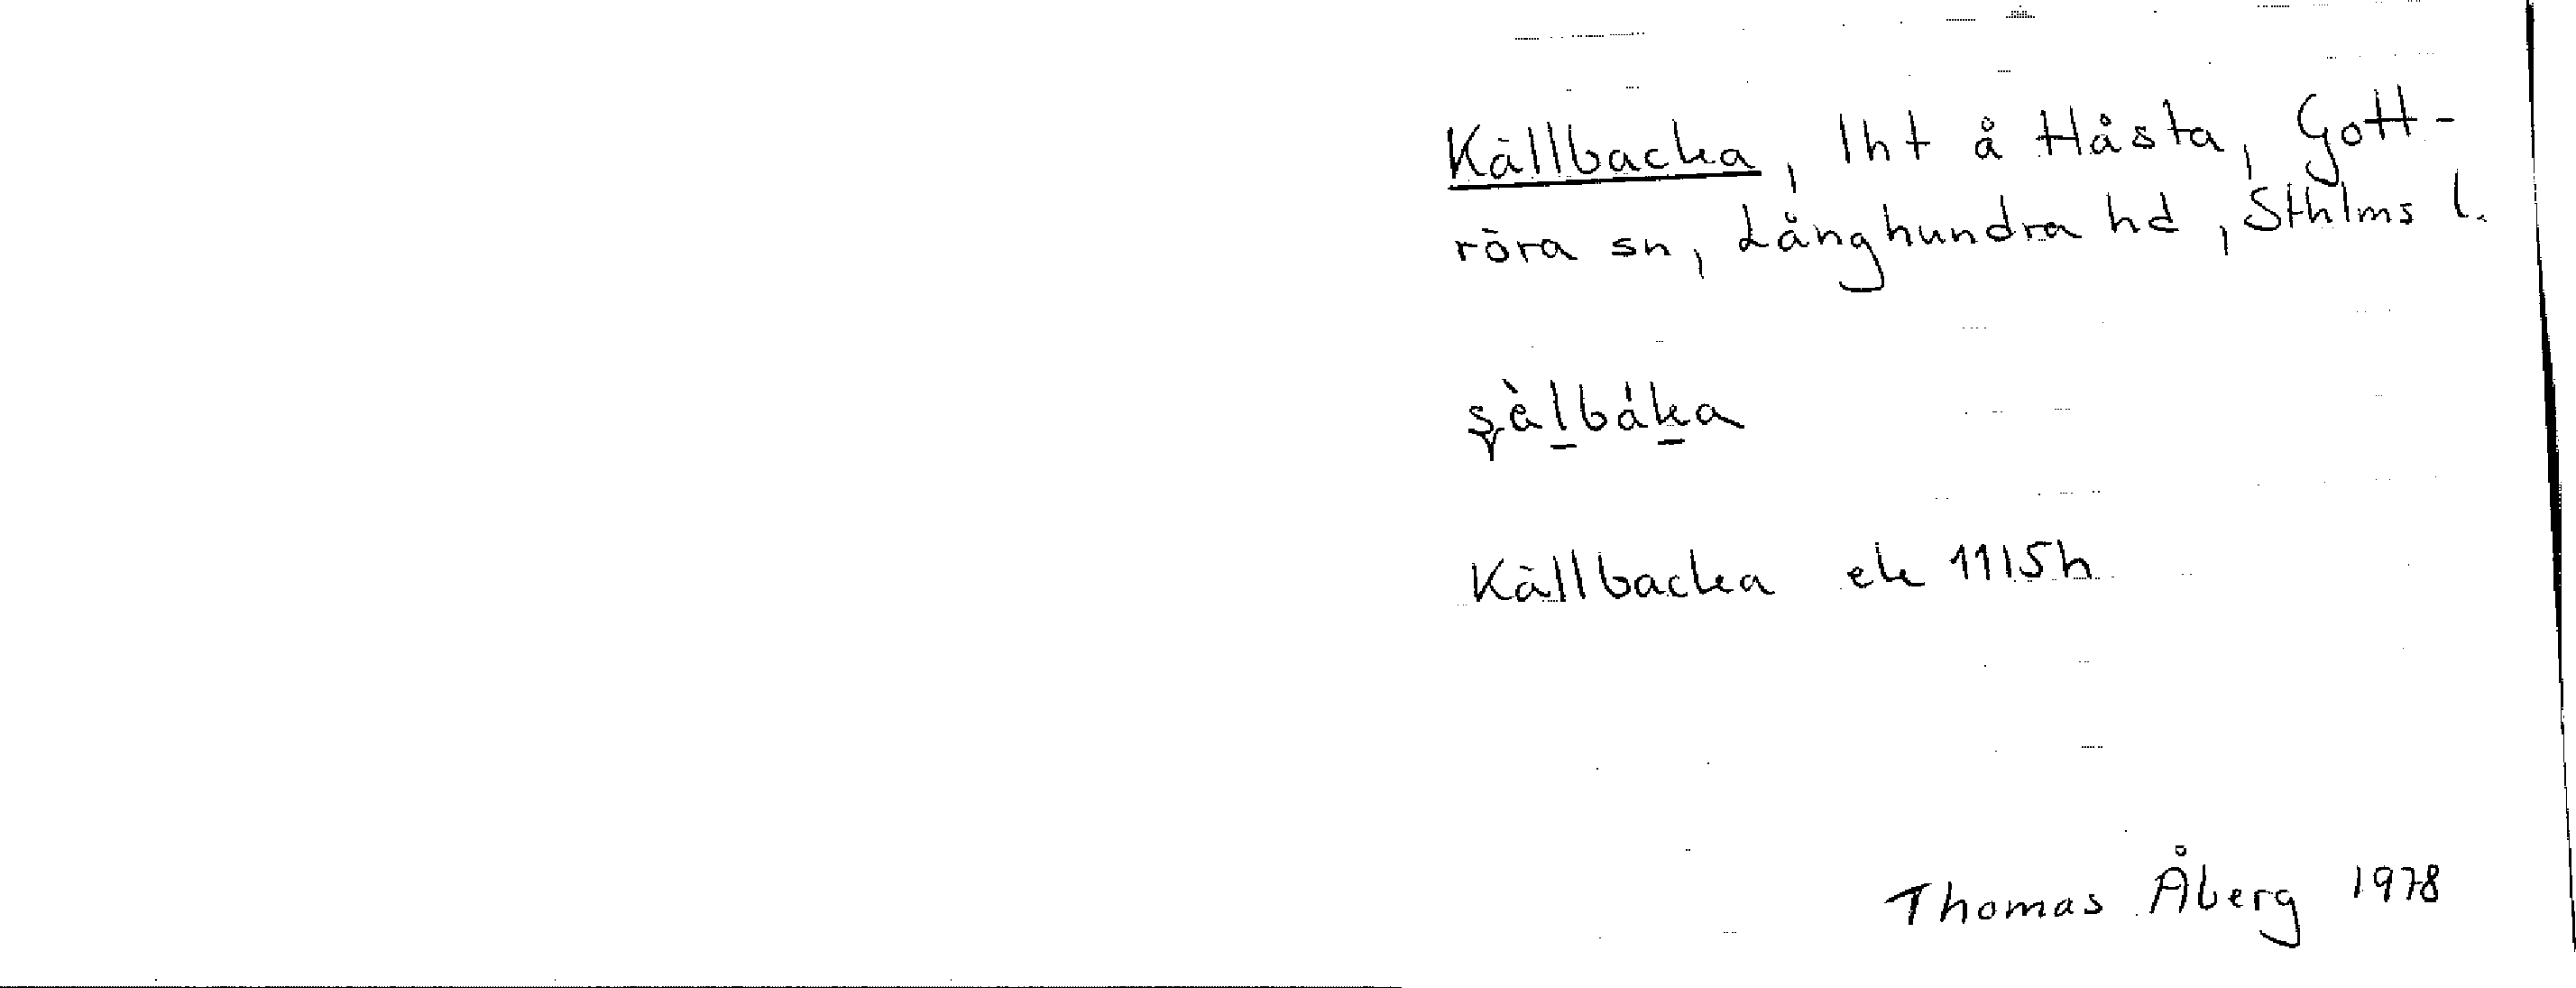 Källbacka, lht å Håsta, Gott-
röra sn, Långhundra hd, Sthlms l.
Källbacka ek 11I5h
Thomas Åberg 1978